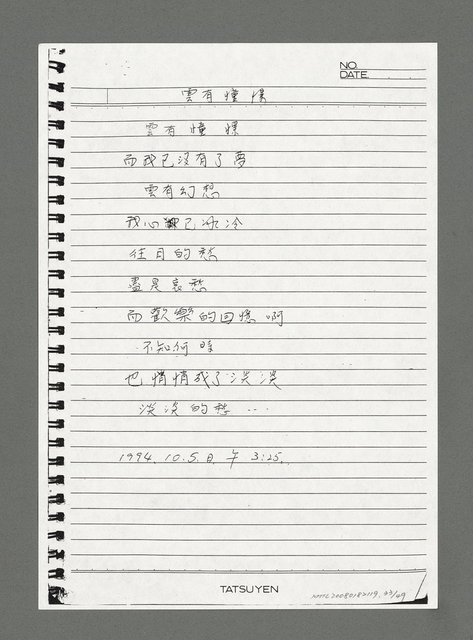 NO.
DATE
雲有憧憬
雲有憧憬
而我已沒有了夢
雲有幻想
我心已冰冷
往日的愁
盡是哀愁
而歡樂的回憶啊
不知何時
也悄悄成了淡淡
淡淡的愁…
1994.10.5.日 午 3:25.
TATSUYEN